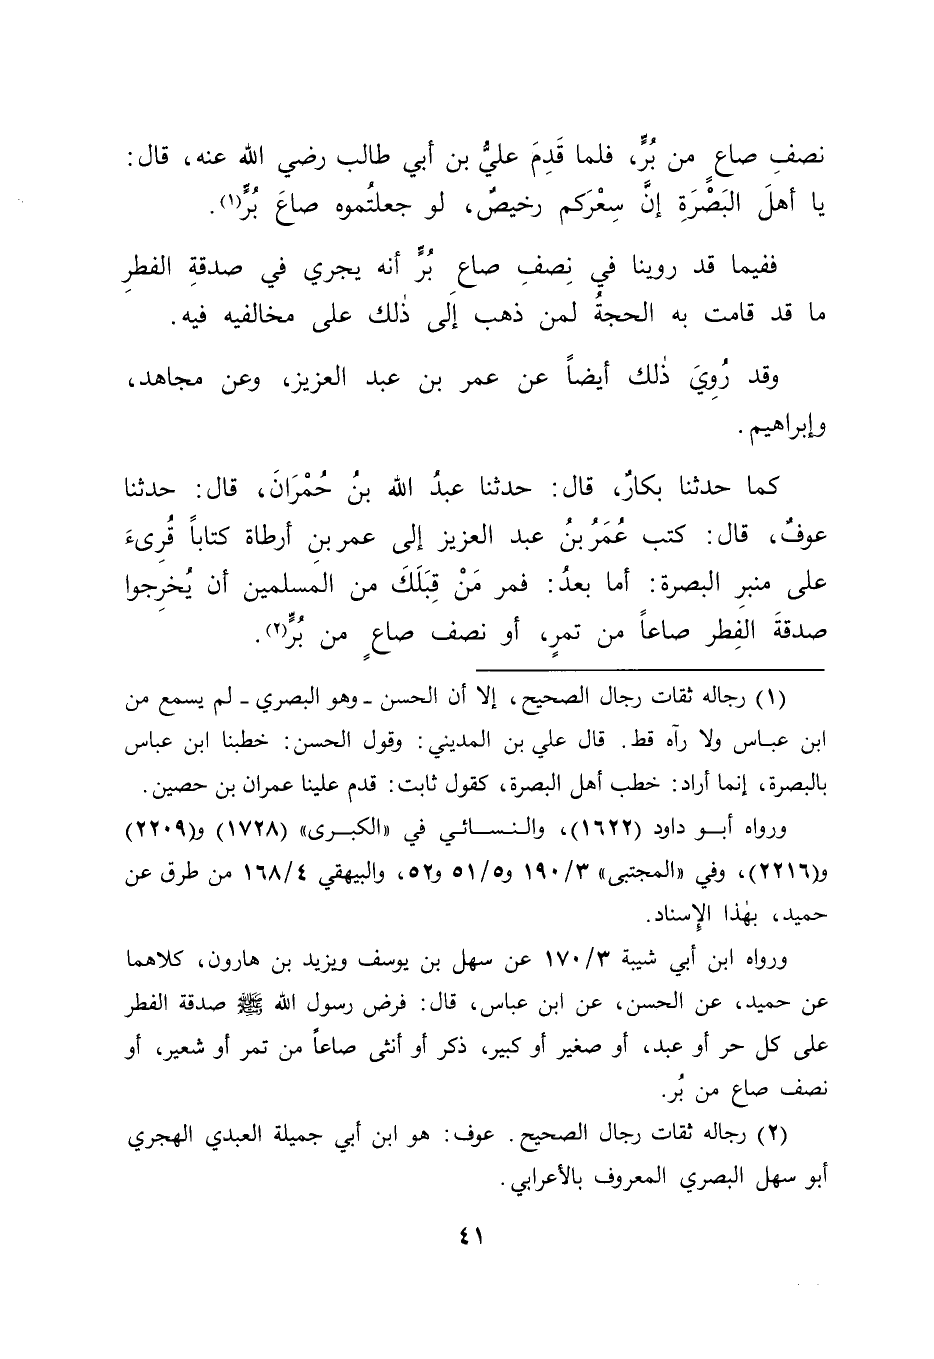 نصفِ صاعٍ من بُرٍّ، فلما قَدِمَ عليُّ بن أبي طالب رضي الله عنه، قال:
يا أهلَ البَصْرَةِ إنَّ سِعْرَكم رخيصٌ، لو جعلتُموه صاعَ بُرٍّ(١).
ففيما قد روينا في نِصفِ صاعِ بُرٍّ أنه يجري في صدقةِ الفطرِ
ما قد قامت به الحجةُ لمن ذهب إلى ذٰلك على مخالفيه فيه.
وقد رُوِيَ ذٰلك أيضاً عن عمر بن عبد العزيز، وعن مجاهد،
وإبراهيم.
كما حدثنا بكارٌ، قال: حدثنا عبدُ الله بنُ حُمْرَانَ، قال: حدثنا
عوفٌ، قال: كتب عُمَرُ بنُ عبد العزيز إلى عمر بن أرطاة كتاباً قُرِىءَ
على منبرِ البصرة: أما بعدُ: فمر مَنْ قِبَلَكَ من المسلمين أن يُخرِجوا
صدقةَ الفِطر صاعاً من تمرٍ، أو نصف صاعٍ من بُرٍّ(٢).
(١) رجاله ثقات رجال الصحيح، إلا أن الحسن ـ وهو البصري ـ لم يسمع من
ابن عباس ولا رآه قط. قال علي بن المديني: وقول الحسن: خطبنا ابن عباس
بالبصرة، إنما أراد: خطب أهل البصرة، كقول ثابت: قدم علينا عمران بن حصين.
ورواه أبو داود (١٦٢٢)، والنسائي في «الكبرى» (١٧٢٨) و(٢٢٠٩)
و(٢٢١٦)، وفي «المجتبى» ١٩٠/٣ و٥١/٥ و٥٢، والبيهقي ١٦٨/٤ من طرق عن
حميد، بهٰذا الإسناد.
ورواه ابن أبي شيبة ١٧٠/٣ عن سهل بن يوسف ويزيد بن هارون، كلاهما
عن حميد، عن الحسن، عن ابن عباس، قال: فرض رسول الله ﷺ صدقة الفطر
على كل حر أو عبد، أو صغير أو كبير، ذكر أو أنثى صاعاً من تمر أو شعير، أو
نصف صاع من بُر.
(٢) رجاله ثقات رجال الصحيح. عوف: هو ابن أبي جميلة العبدي الهجري
أبو سهل البصري المعروف بالأعرابي.
٤١